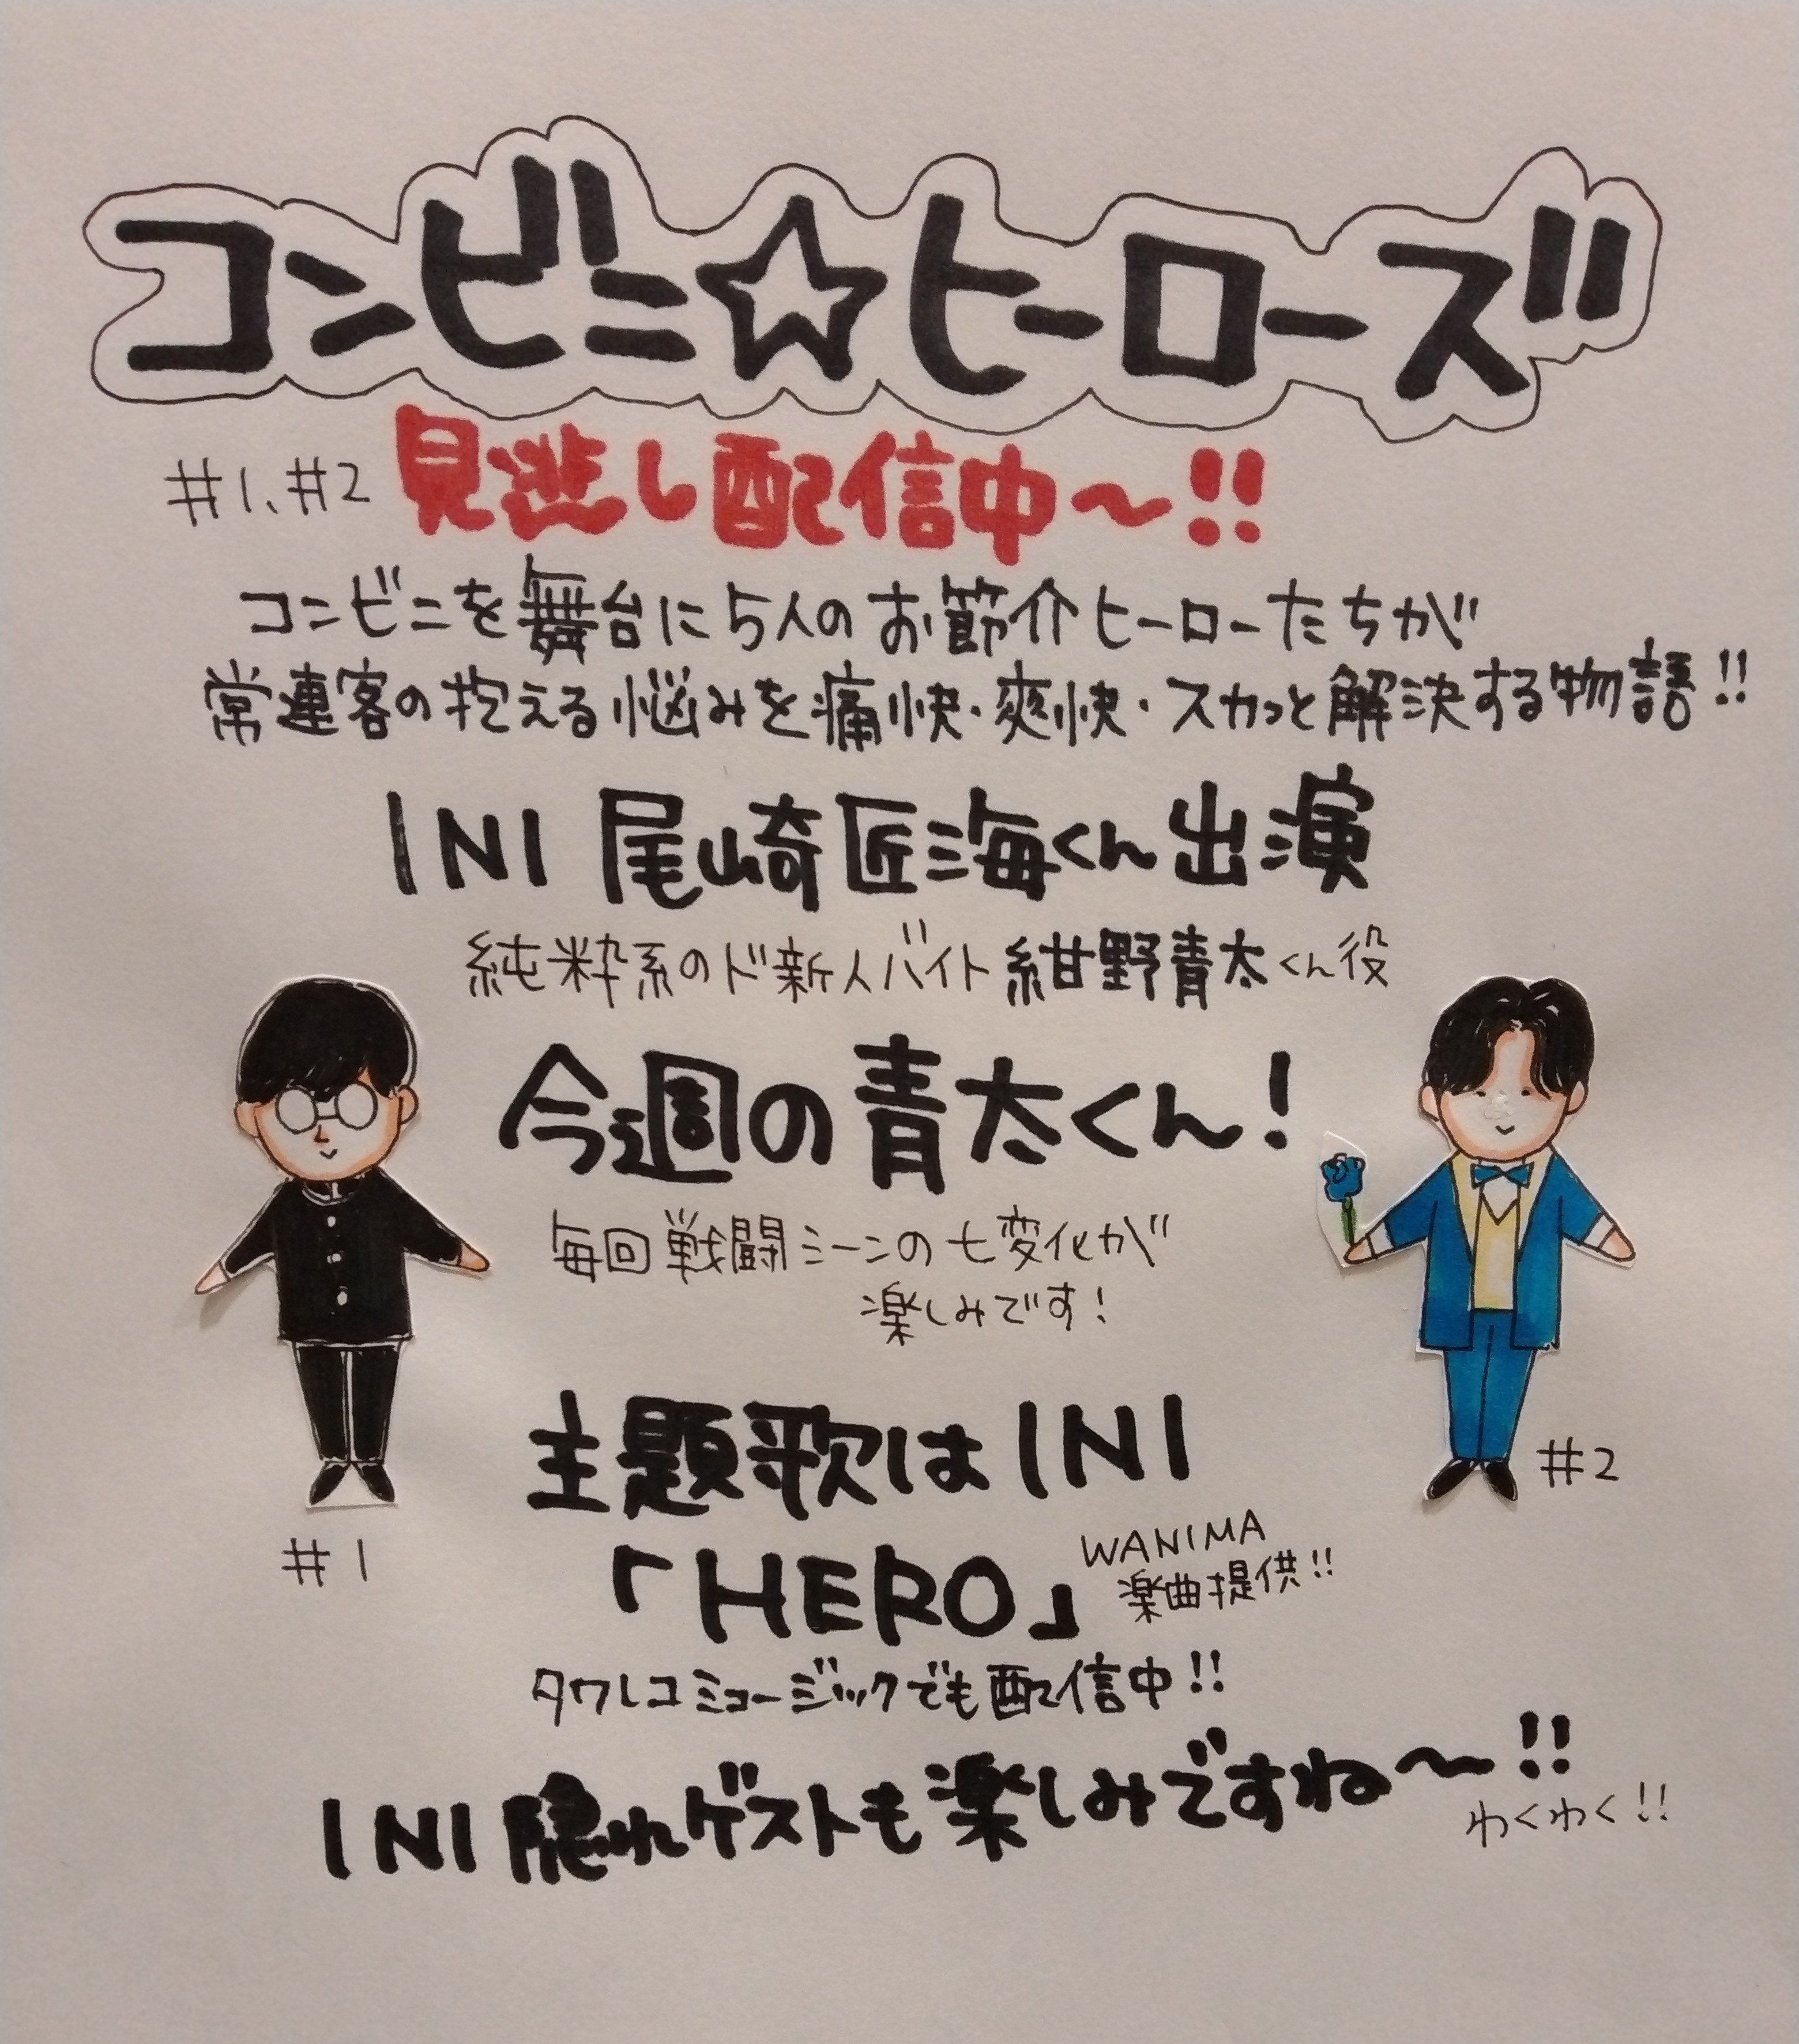 コンビニ☆ヒーローズ
#1、#2 見逃し配信中〜!!
コンビニを舞台に5人のお節介ヒーローたちが
常連客の抱える悩みを痛快・爽快・スカッと解決する物語!!
INI 尾崎匠海くん出演
純粋系のド新人バイト 紺野青太くん役
今週の青太くん!
毎回戦闘シーンの七変化が
楽しみです!
主題歌は INI
「HERO」
WANIMA
楽曲提供!!
#2
#1
タワレコミュージックでも配信中!!
INI 隠れゲストも楽しみですね〜!!
わくわく!!